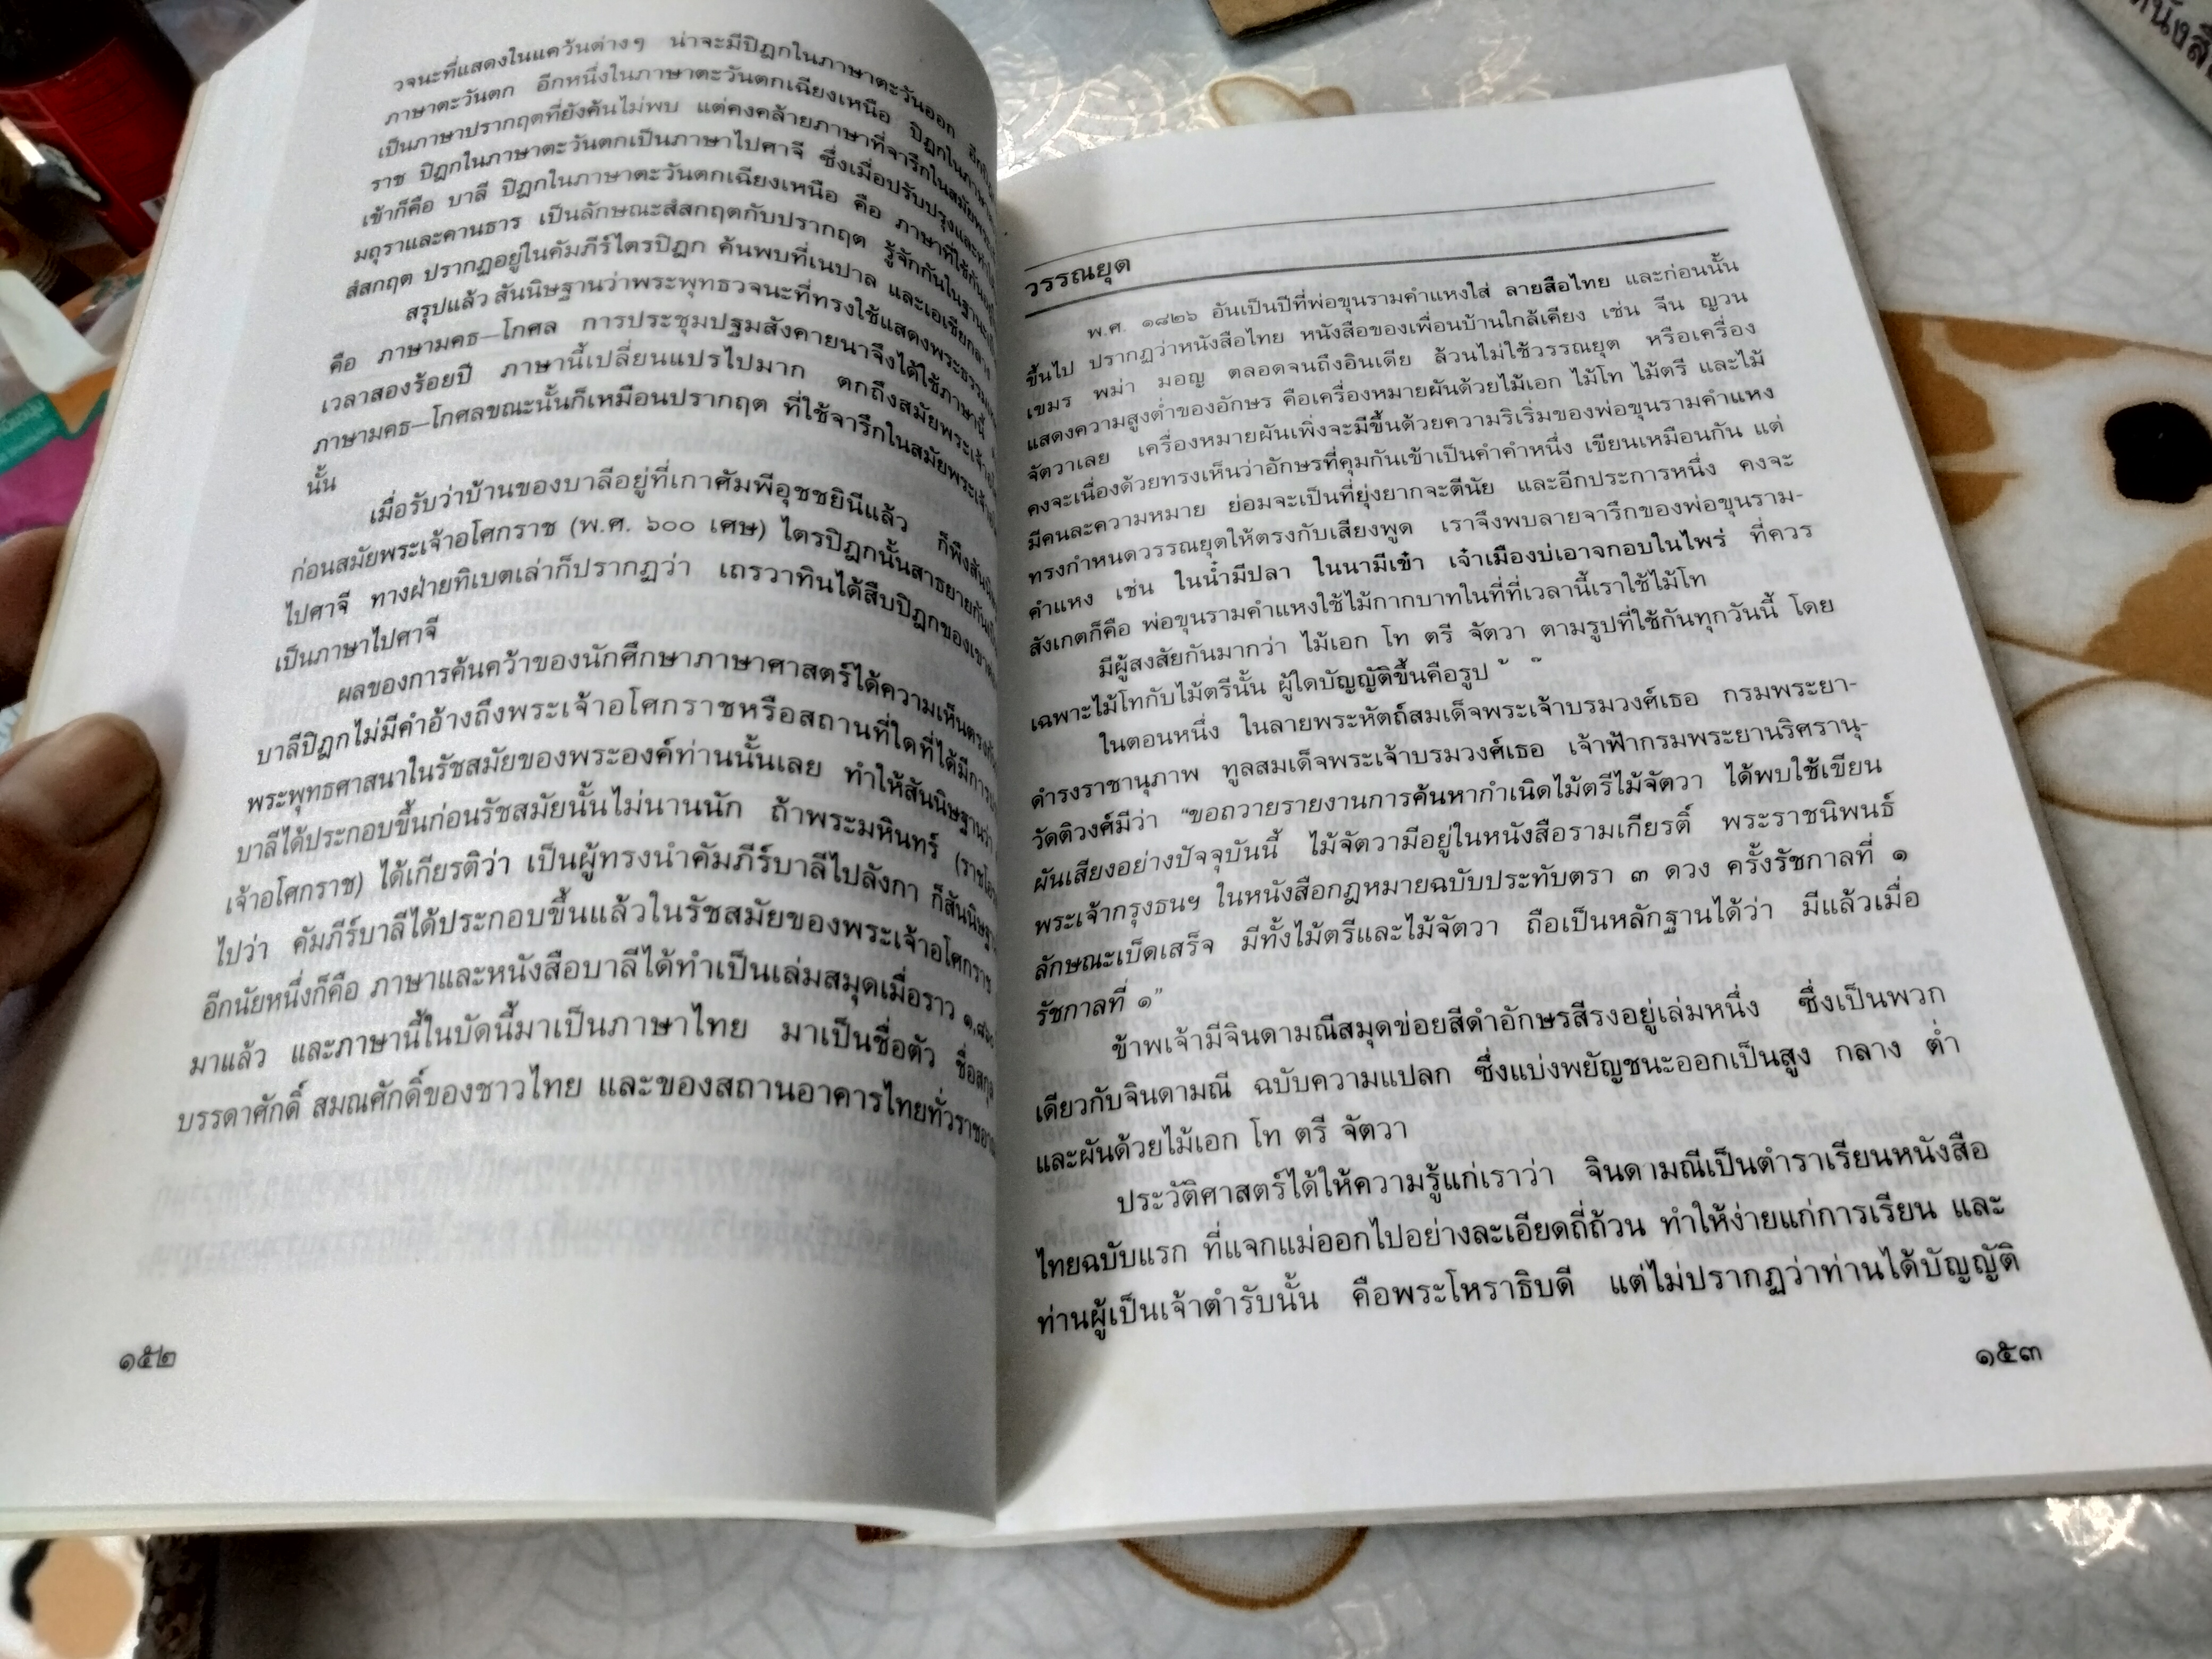 วจนะที่แสดงในแคว้นต่างๆ น่าจะมีปิฎกในภาษาตะวันออก
ภาษาตะวันตก อีกหนึ่งในภาษาตะวันตกเฉียงเหนือ ปิฎกในภาษา
เป็นภาษาปรากฤตที่ยังค้นไม่พบ แต่คงคล้ายภาษาที่จารึกในสมัยพระ
ราช ปิฎกในภาษาตะวันตกเป็นภาษาไปศาจี ซึ่งเมื่อปรับปรุงและ
เข้าก็คือ บาลี ปิฎกในภาษาตะวันตกเฉียงเหนือ คือ ภาษาที่ใช้กัน
มถุราและคานธาร เป็นลักษณะสํสกฤตกับปรากฤต รู้จักกันในฐานะ
สํสกฤต ปรากฏอยู่ในคัมภีร์ไตรปิฎก ค้นพบที่เนปาล และเอเซียกลาง
สรุปแล้ว สันนิษฐานว่าพระพุทธวจนะที่ทรงใช้แสดงพระธรรม
คือ ภาษามคธ—โกศล การประชุมปฐมสังคายนาจึงได้ใช้ภาษานี้
เวลาสองร้อยปี ภาษานี้เปลี่ยนแปรไปมาก ตกถึงสมัยพระเจ้า
ภาษามคธ—โกศลขณะนั้นก็เหมือนปรากฤต ที่ใช้จารึกในสมัยพระเจ้า
นั้น
เมื่อรับว่าบ้านของบาลีอยู่ที่เกาศัมพีอุชชยินีแล้ว ก็พึง
ก่อนสมัยพระเจ้าอโศกราช (พ.ศ. ๖๐๐ เศษ) ไตรปิฎกนั้นสาธยายกัน
ไปศาจี ทางฝ่ายทิเบตเล่าก็ปรากฏว่า เถรวาทินได้สืบปิฎกของเขา
เป็นภาษาไปศาจี
ผลของการค้นคว้าของนักศึกษาภาษาศาสตร์ได้ความเห็นตรงกัน
บาลีปิฎกไม่มีคำอ้างถึงพระเจ้าอโศกราชหรือสถานที่ใดที่ได้มีการ
พระพุทธศาสนาในรัชสมัยของพระองค์ท่านนั้นเลย ทำให้สันนิษฐานว่า
บาลีได้ประกอบขึ้นก่อนรัชสมัยนั้นไม่นานนัก ถ้าพระมหินทร์
เจ้าอโศกราช) ได้เกียรติว่า เป็นผู้ทรงนำคัมภีร์บาลีไปลังกา ก็สันนิษฐาน
ไปว่า คัมภีร์บาลีได้ประกอบขึ้นแล้วในรัชสมัยของพระเจ้าอโศกราช
อีกนัยหนึ่งก็คือ ภาษาและหนังสือบาลีได้ทำเป็นเล่มสมุดเมื่อราว
มาแล้ว และภาษานี้ในบัดนี้มาเป็นภาษาไทย มาเป็นชื่อตัว ชื่อสกุล
บรรดาศักดิ์ สมณศักดิ์ของชาวไทย และของสถานอาคารไทยทั่ว
๑๕๒
วรรณยุต
พ.ศ. ๑๘๒๖ อันเป็นปีที่พ่อขุนรามคำแหงใส่ ลายสือไทย และก่อนนั้น
ขึ้นไป ปรากฏว่าหนังสือไทย หนังสือของเพื่อนบ้านใกล้เคียง เช่น จีน ญวน
เขมร พม่า มอญ ตลอดจนถึงอินเดีย ล้วนไม่ใช้วรรณยุต หรือเครื่อง
แสดงความสูงต่ำของอักษร คือเครื่องหมายผันด้วยไม้เอก ไม้โท ไม้ตรี และไม้
จัตวาเลย เครื่องหมายผันเพิ่งจะมีขึ้นด้วยความริเริ่มของพ่อขุนรามคำแหง
คงจะเนื่องด้วยทรงเห็นว่าอักษรที่คุมกันเข้าเป็นคำคำหนึ่ง เขียนเหมือนกัน แต่
มีคนละความหมาย ย่อมจะเป็นที่ยุ่งยากจะตีนัย และอีกประการหนึ่ง คงจะ
ทรงกำหนดวรรณยุตให้ตรงกับเสียงพูด เราจึงพบลายจารึกของพ่อขุนราม-
คำแหง เช่น ในน้ำมีปลา ในนามีเข๋า เจ๋าเมืองบ่เอาจกอบในไพร่ ที่ควร
สังเกตก็คือ พ่อขุนรามคำแหงใช้ไม้กากบาทในที่ที่เวลานี้เราใช้ไม้โท
มีผู้สงสัยกันมากว่า ไม้เอก โท ตรี จัตวา ตามรูปที่ใช้กันทุกวันนี้ โดย
เฉพาะไม้โทกับไม้ตรีนั้น ผู้ใดบัญญัติขึ้นคือรูป ้ ๊
ในตอนหนึ่ง ในลายพระหัตถ์สมเด็จพระเจ้าบรมวงศ์เธอ กรมพระยา-
ดำรงราชานุภาพ ทูลสมเด็จพระเจ้าบรมวงศ์เธอ เจ้าฟ้ากรมพระยานริศรานุ-
วัดติวงศ์มีว่า “ขอถวายรายงานการค้นหากำเนิดไม้ตรีไม้จัตวา ได้พบใช้เขียน
ผันเสียงอย่างปัจจุบันนี้ ไม้จัตวามีอยู่ในหนังสือรามเกียรติ์ พระราชนิพนธ์
พระเจ้ากรุงธนฯ ในหนังสือกฎหมายฉบับประทับตรา ๓ ดวง ครั้งรัชกาลที่ ๑
ลักษณะเบ็ดเสร็จ มีทั้งไม้ตรีและไม้จัตวา ถือเป็นหลักฐานได้ว่า มีแล้วเมื่อ
รัชกาลที่ ๑”
ข้าพเจ้ามีจินดามณีสมุดข่อยสีดำอักษรสีรงอยู่เล่มหนึ่ง ซึ่งเป็นพวก
เดียวกับจินดามณี ฉบับความแปลก ซึ่งแบ่งพยัญชนะออกเป็นสูง กลาง ต่ำ
และผันด้วยไม้เอก โท ตรี จัตวา
ประวัติศาสตร์ได้ให้ความรู้แก่เราว่า จินดามณีเป็นตำราเรียนหนังสือ
ไทยฉบับแรก ที่แจกแม่ออกไปอย่างละเอียดถี่ถ้วน ทำให้ง่ายแก่การเรียน และ
ท่านผู้เป็นเจ้าตำรับนั้น คือพระโหราธิบดี แต่ไม่ปรากฏว่าท่านได้บัญญัติ
๑๕๓